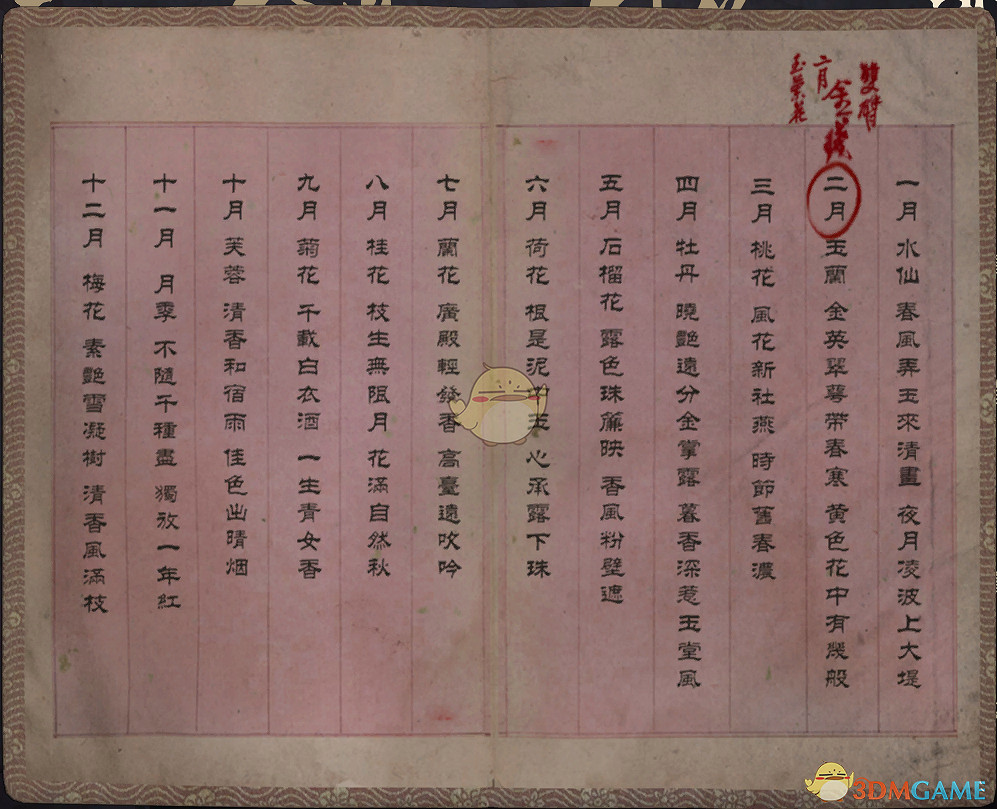 雙
金
二月
一月 水仙 春風弄玉來清畫 夜月凌波上大堤
二月 玉蘭 金英翠萼帶春寒 黄色花中有幾般
三月 桃花 風花新社燕 時節舊春濃
四月 牡丹 曉艷遠分金掌露 暮香深惹玉堂風
五月 石榴花 露色珠簾映 香風粉壁遮
六月 荷花 根是泥中玉 心承露下珠
七月 蘭花 廣殿輕發香 高臺遠吹吟
八月 桂花 枝生無限月 花滿自然秋
九月 菊花 千載白衣酒 一生青女香
十月 芙蓉 清香和宿雨 佳色出晴烟
十一月 月季 不隨千種盡 獨放一年紅
十二月 梅花 素艷雪凝樹 清香風滿枝
3DMGAME